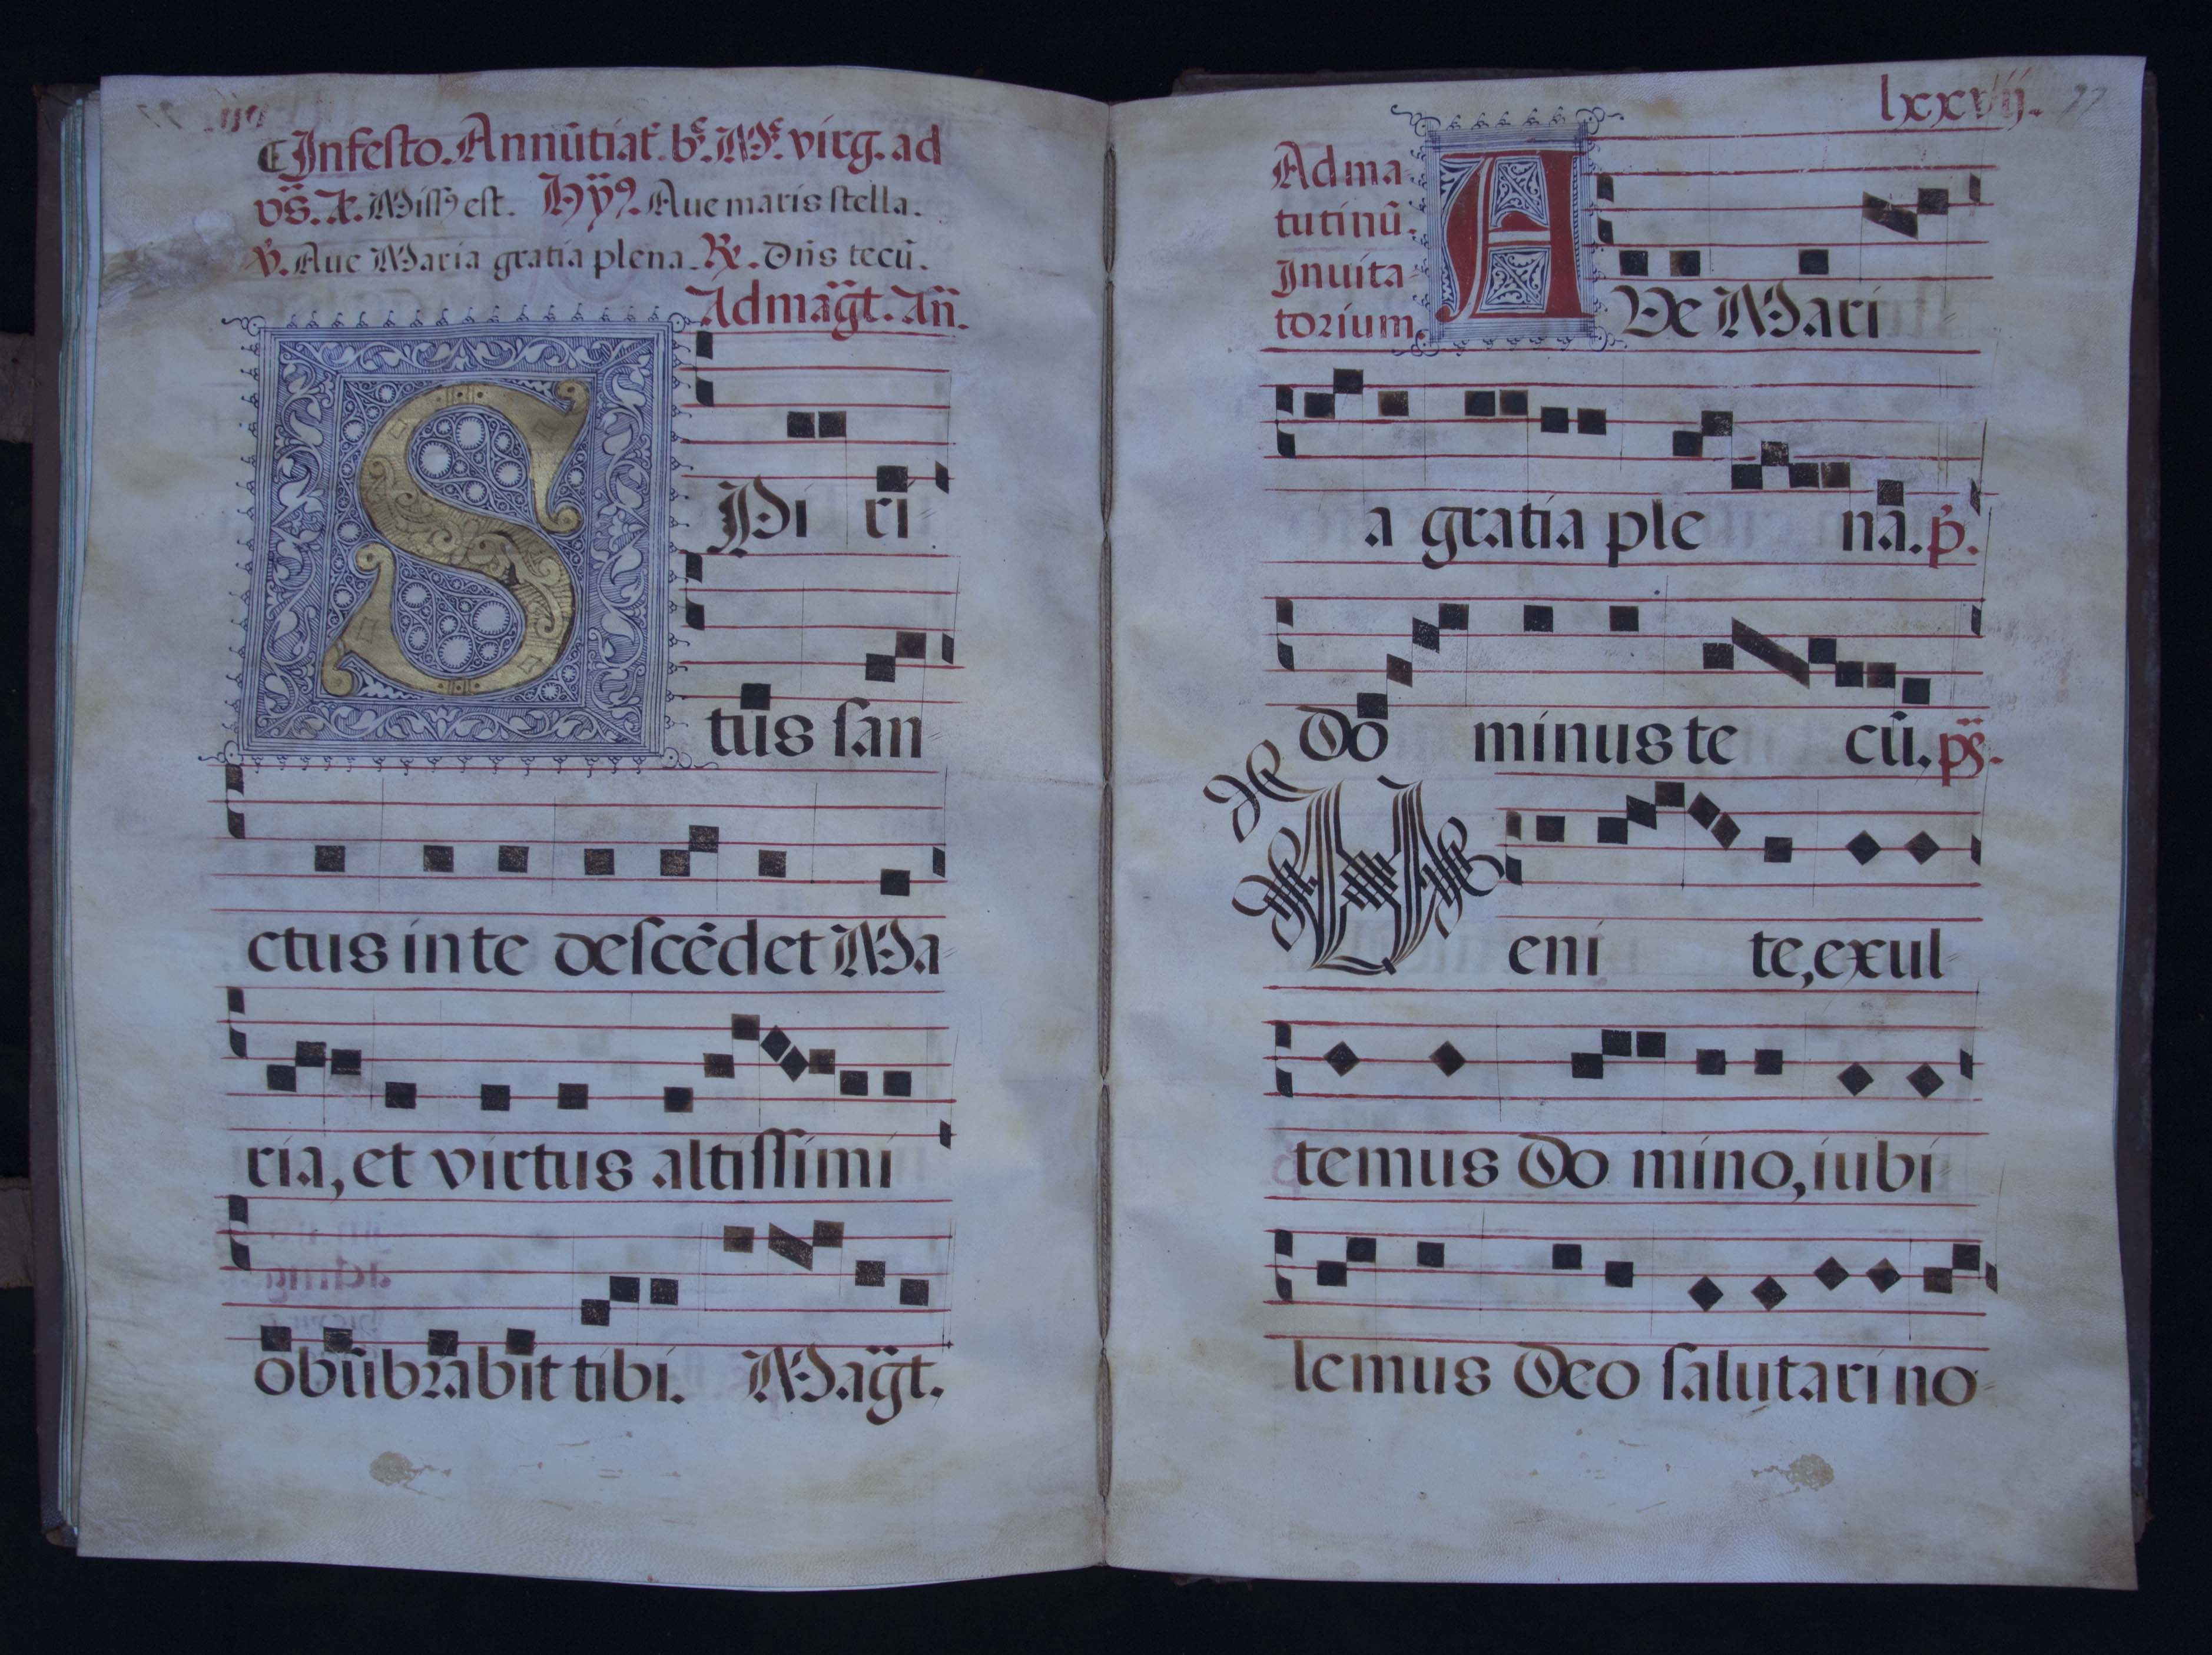 Infesto. Annũtiat̃. bẽ. Mẽ. virg. ad
vẽs. Añ. Miss⁹ est. Hỹ⁹. Aue maris stella.
℣. Aue Maria gratia plena. ℟. Dñs tecũ.
Ad mag̃t. Añ.
SPi ri
tus san
ctus in te descẽdet Ma
ria, et virtus altissimi
obũbrabit tibi. Mag̃t.
lxxvii. 77
Ad ma
tutinũ.
Inuita
torium.
AUe Mari
a gratia ple na. p̃.
Do minus te cũ. ps̃.
Ueni te, exul
temus Do mino, iubi
lemus Deo salutari no